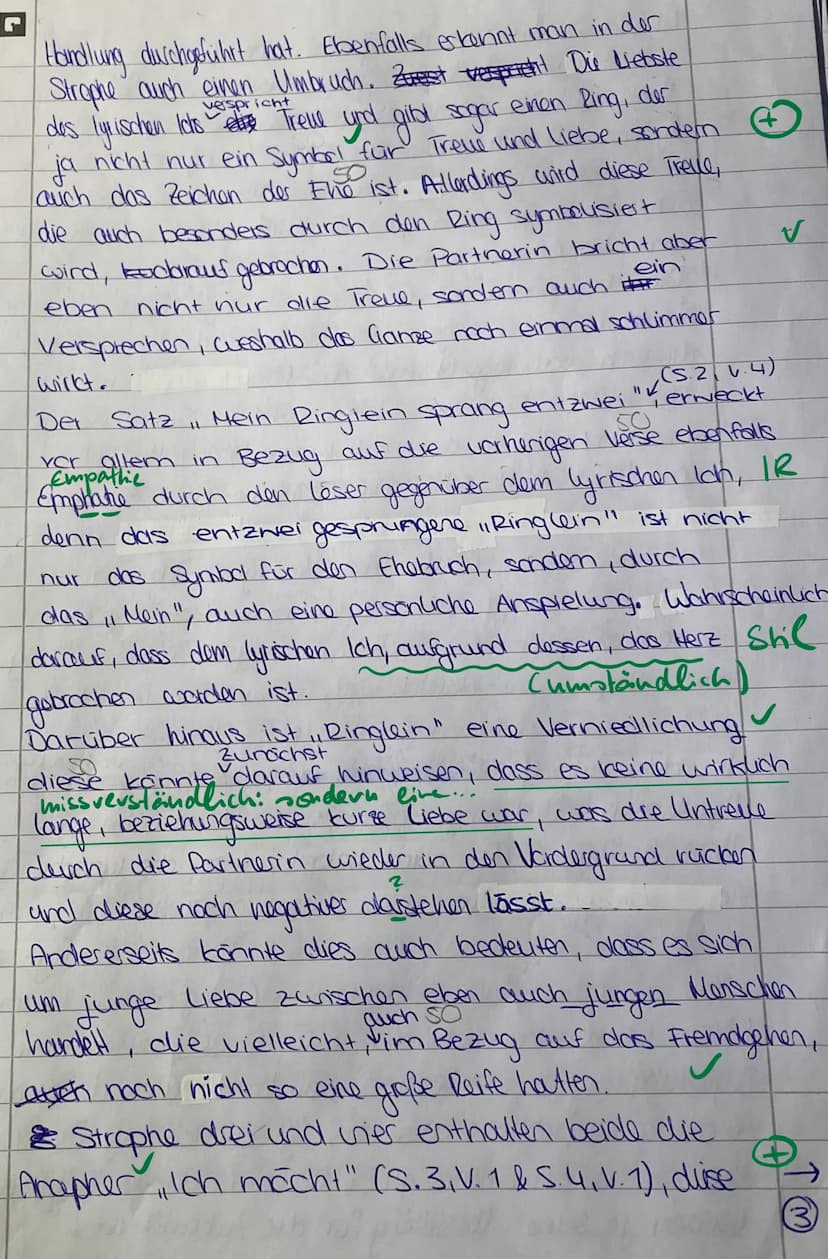 Handlung durchgeführt hat. Ebenfalls erkennt man in der
Strophe auch einen Umbruch. Zuerst verspricht Die Liebste
des lyrischen Ichs verspricht Treue und gibt sogar einen Ring, der
ja nicht nur ein Symbol für Treue und Liebe, sondern
auch das Zeichen der Ehe ist. Allerdings wird diese Treue,
so
die auch besonders durch den Ring symbolisiert
wird, kurz darauf gebrochen. Die Partnerin bricht aber
eben nicht nur die Treue, sondern auch ein
Versprechen, weshalb das Ganze noch einmal schlimmer
wirkt.
(S.2, V.4)
Der Satz „Mein Ringlein sprang entzwei", erweckt
so
vor allem in Bezug auf die vorherigen Verse ebenfalls
Empathie
Emphatie durch den Leser gegenüber dem lyrischen Ich, IR
denn das entzwei gesprungene „Ringlein" ist nicht
nur das Symbol für den Ehebruch, sondern, durch
das „Mein", auch eine persönliche Anspielung. Wahrscheinlich
darauf, dass dem lyrischen Ich, aufgrund dessen, das Herz Stil
(umständlich)
gebrochen worden ist.
Darüber hinaus ist „Ringlein" eine Verniedlichung
so zunächst
diese könnte darauf hinweisen, dass es keine wirklich
missverständlich: sondern eine...
lange, beziehungsweise kurze Liebe war, was die Untreue
durch die Partnerin wieder in den Vordergrund rücken
?
und diese noch negativer dastehen lässt.
Andererseits könnte dies auch bedeuten, dass es sich
um junge Liebe zwischen eben auch jungen Menschen
auch so
handelt, die vielleicht, im Bezug auf das Fremdgehen,
auch noch nicht so eine große Reife hatten.
Strophe drei und vier enthalten beide die
Anapher „Ich möcht" (S.3, V.1 & S.4, V.1), diese
→
3